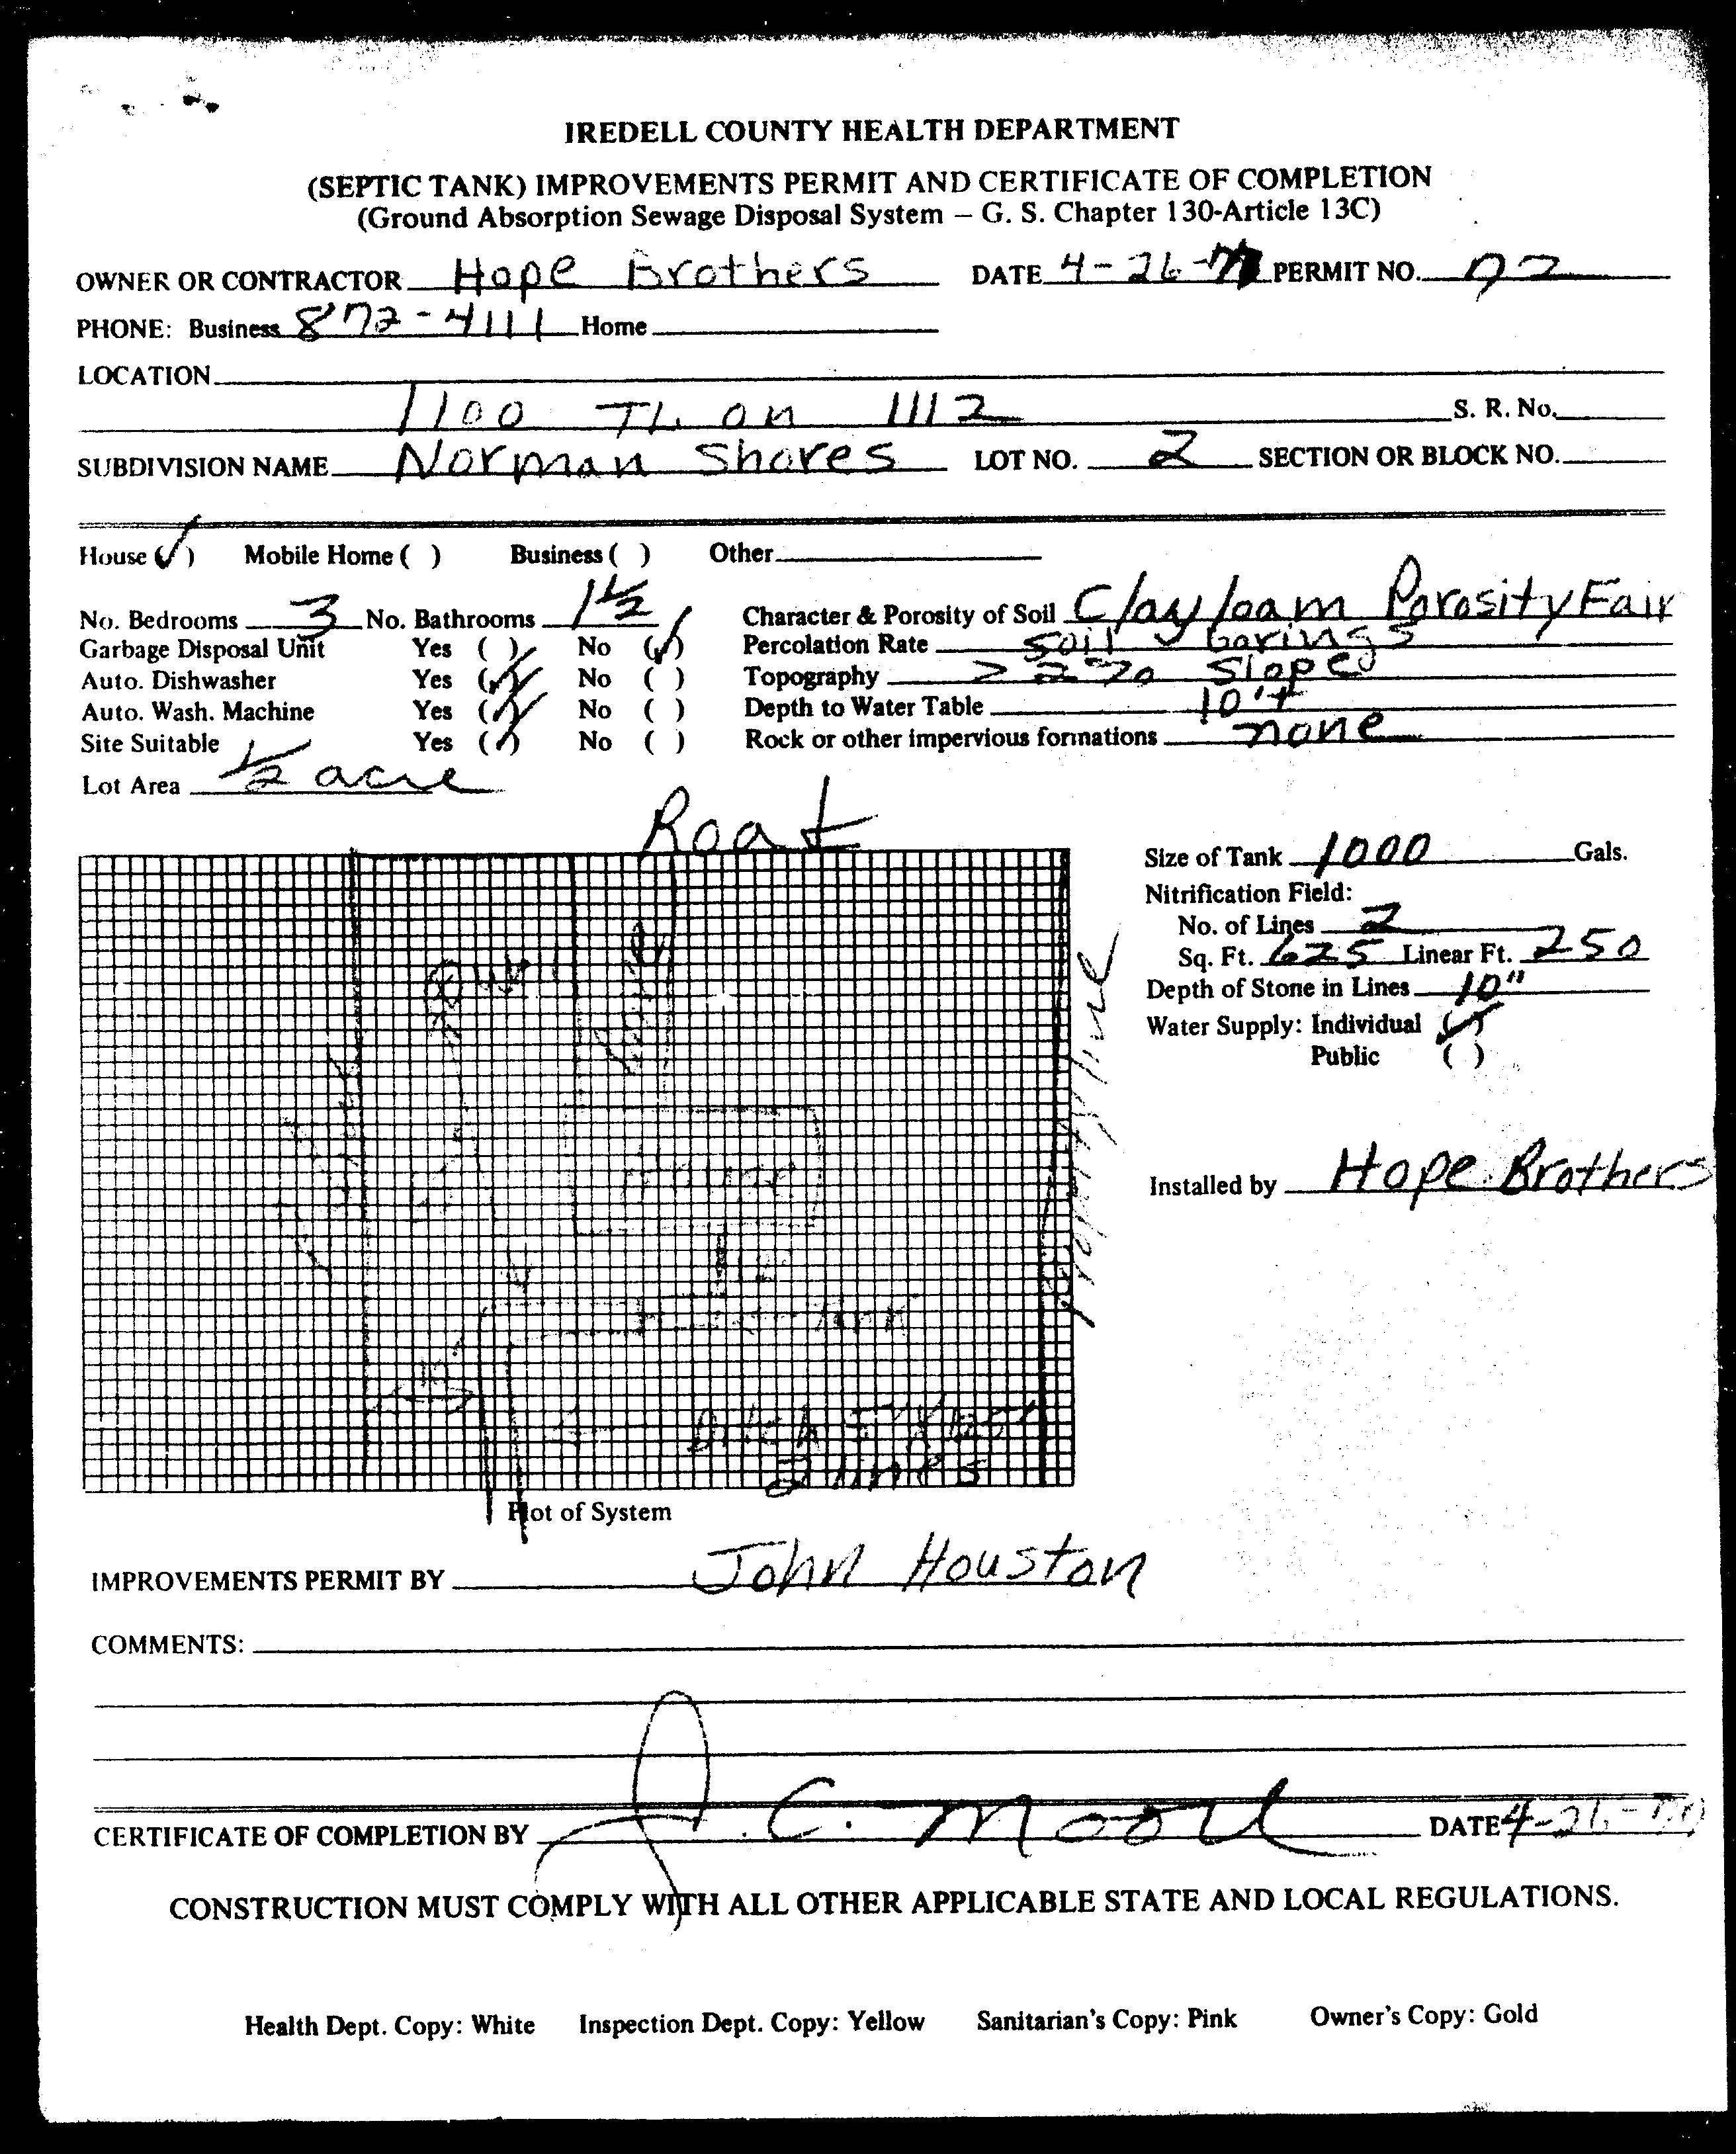 IREDELL COUNTY HEALTH DEPARTMENT
(SEPTIC TANK) IMPROVEMENTS PERMIT AND CERTIFICATE OF COMPLETION
(Ground Absorption Sewage Disposal System – G. S. Chapter 130-Article 13C)
OWNER OR CONTRACTOR Hope Brothers DATE 4-26- PERMIT NO.
PHONE: Business 872-4111 Home
LOCATION
1100 TL on 1112 S. R. No.
SUBDIVISION NAME Norman Shores LOT NO. 2 SECTION OR BLOCK NO.
House (✓) Mobile Home ( ) Business ( ) Other
No. Bedrooms 3 No. Bathrooms 1 1/2 Character & Porosity of Soil Clay loam Porosity Fair
Garbage Disposal Unit Yes ( ) No (✓) Percolation Rate soil borings
Auto. Dishwasher Yes (✓) No ( ) Topography > 2% Slope
Auto. Wash. Machine Yes (✓) No ( ) Depth to Water Table 10'+
Site Suitable Yes (✓) No ( ) Rock or other impervious formations none
Lot Area 1/2 acre
Size of Tank 1000 Gals.
Nitrification Field:
No. of Lines 2
Sq. Ft. 625 Linear Ft. 250
Depth of Stone in Lines 10"
Water Supply: Individual (✓)
Public ( )
property line
House
Tank
2 lines
Installed by Hope Brothers
Plot of System
IMPROVEMENTS PERMIT BY John Houston
COMMENTS:
CERTIFICATE OF COMPLETION BY J. C. Moore DATE 4-26-
CONSTRUCTION MUST COMPLY WITH ALL OTHER APPLICABLE STATE AND LOCAL REGULATIONS.
Health Dept. Copy: White Inspection Dept. Copy: Yellow Sanitarian's Copy: Pink Owner's Copy: Gold